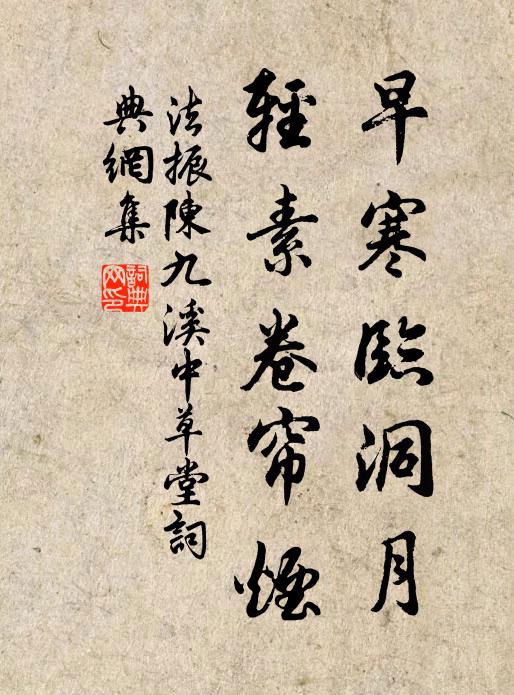 早寒臨洞月
輕素卷帘煙
法振陳九溪中草堂詞
典網集
詞典網印